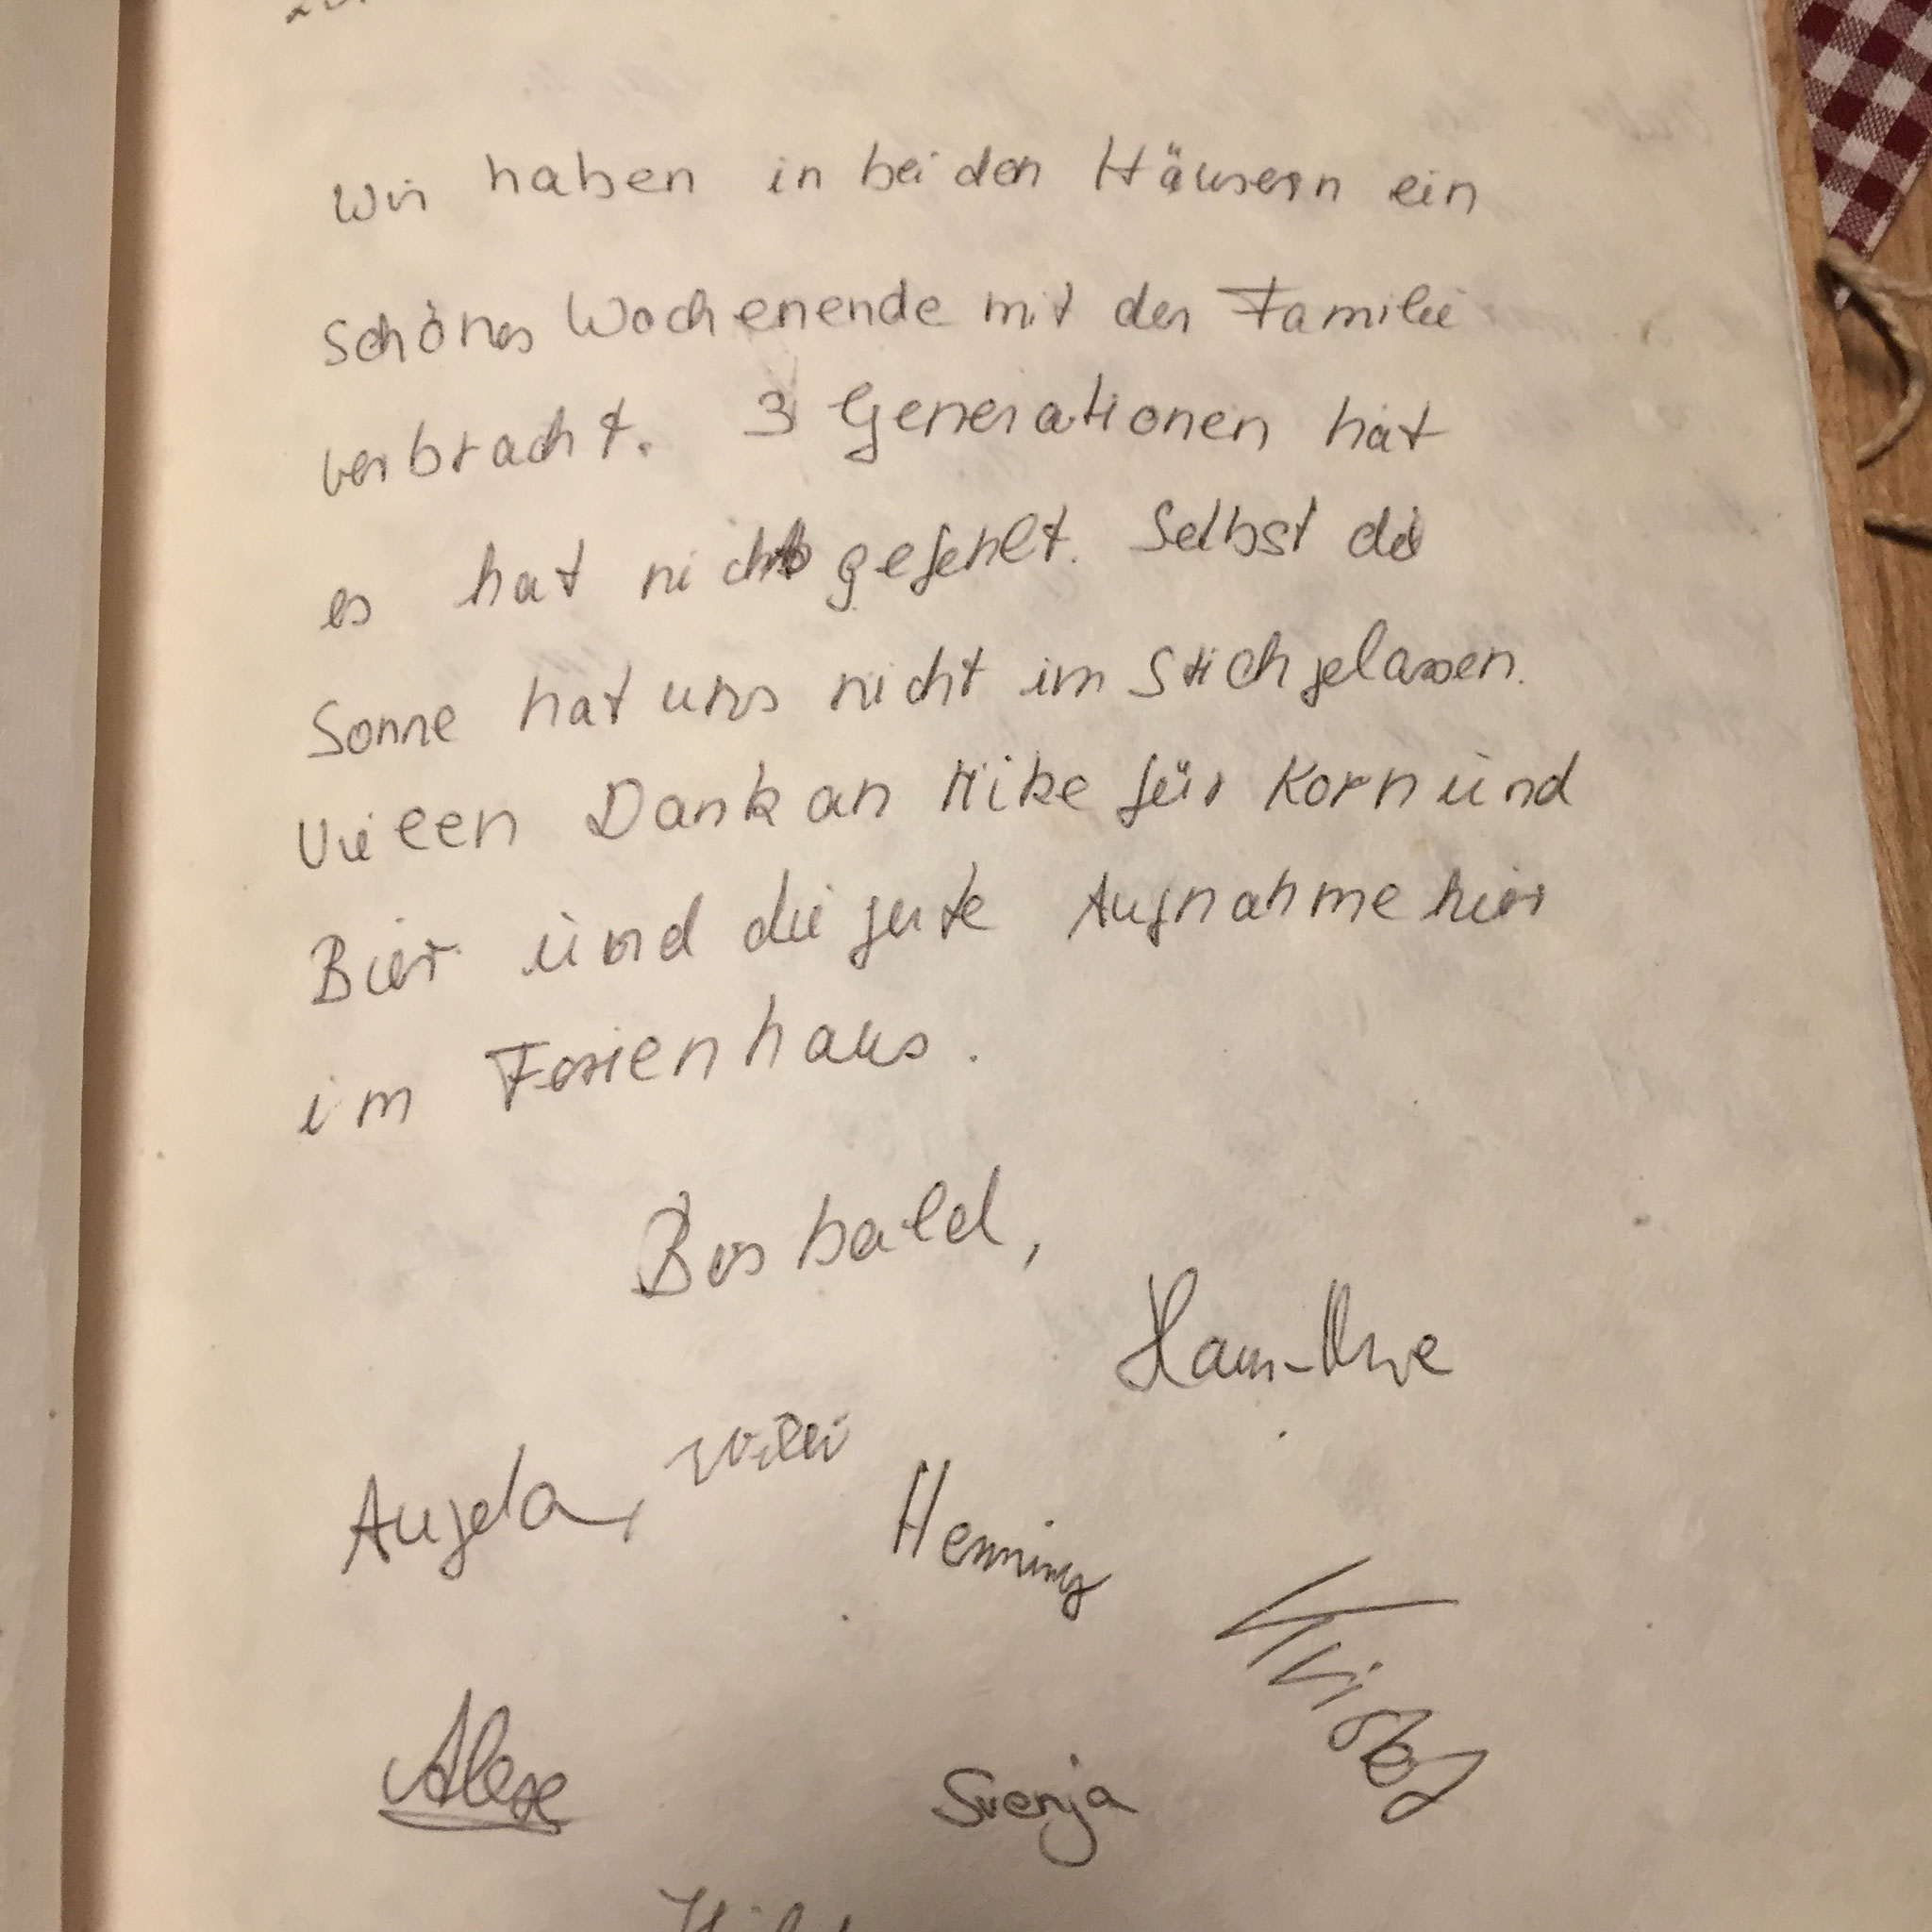 Wir haben in beiden Häusern ein
schönes Wochenende mit der Familie
verbracht. 3 Generationen hat
es hat nichts gefehlt. Selbst die
Sonne hat uns nicht im Stich gelassen.
Vielen Dank an Mike für Korn und
Bier und die gute Aufnahme hier
im Ferienhaus.
Bis bald,
Hans-Uwe
Angela, Willi
Henning
Alex
Svenja